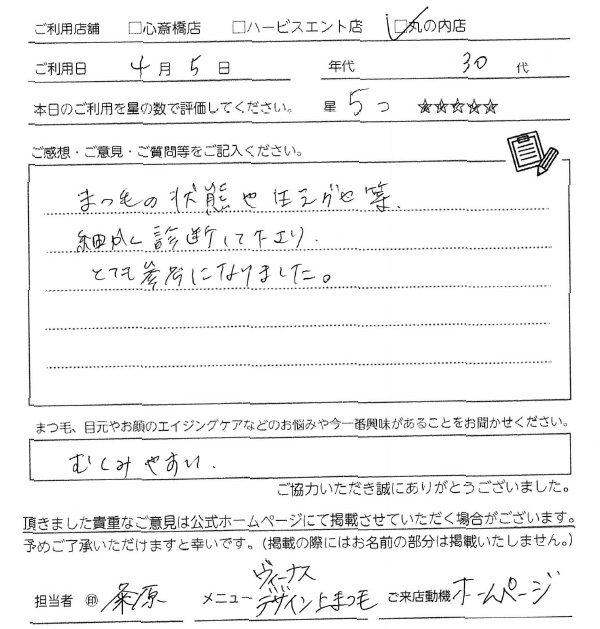 ご利用店舗 □心斎橋店 □ハービスエント店 □丸の内店
ご利用日 4月5日 年代 30代
本日のご利用を星の数で評価してください。 星 5つ ☆☆☆☆☆
ご感想・ご意見・ご質問等をご記入ください。
まつ毛の状態や生えグセ等、
細かく診断して下さり、
とても参考になりました。
まつ毛、目元やお顔のエイジングケアなどのお悩みや今一番興味があることをお聞かせください。
むくみやすい、
ご協力いただき誠にありがとうございました。
頂きました貴重なご意見は公式ホームページにて掲載させていただく場合がございます。
予めご了承いただけますと幸いです。(掲載の際にはお名前の部分は掲載いたしません。)
ヴィーナス
担当者 ㊞ 粂原 メニュー デザイン上まつ毛 ご来店動機 ホームページ